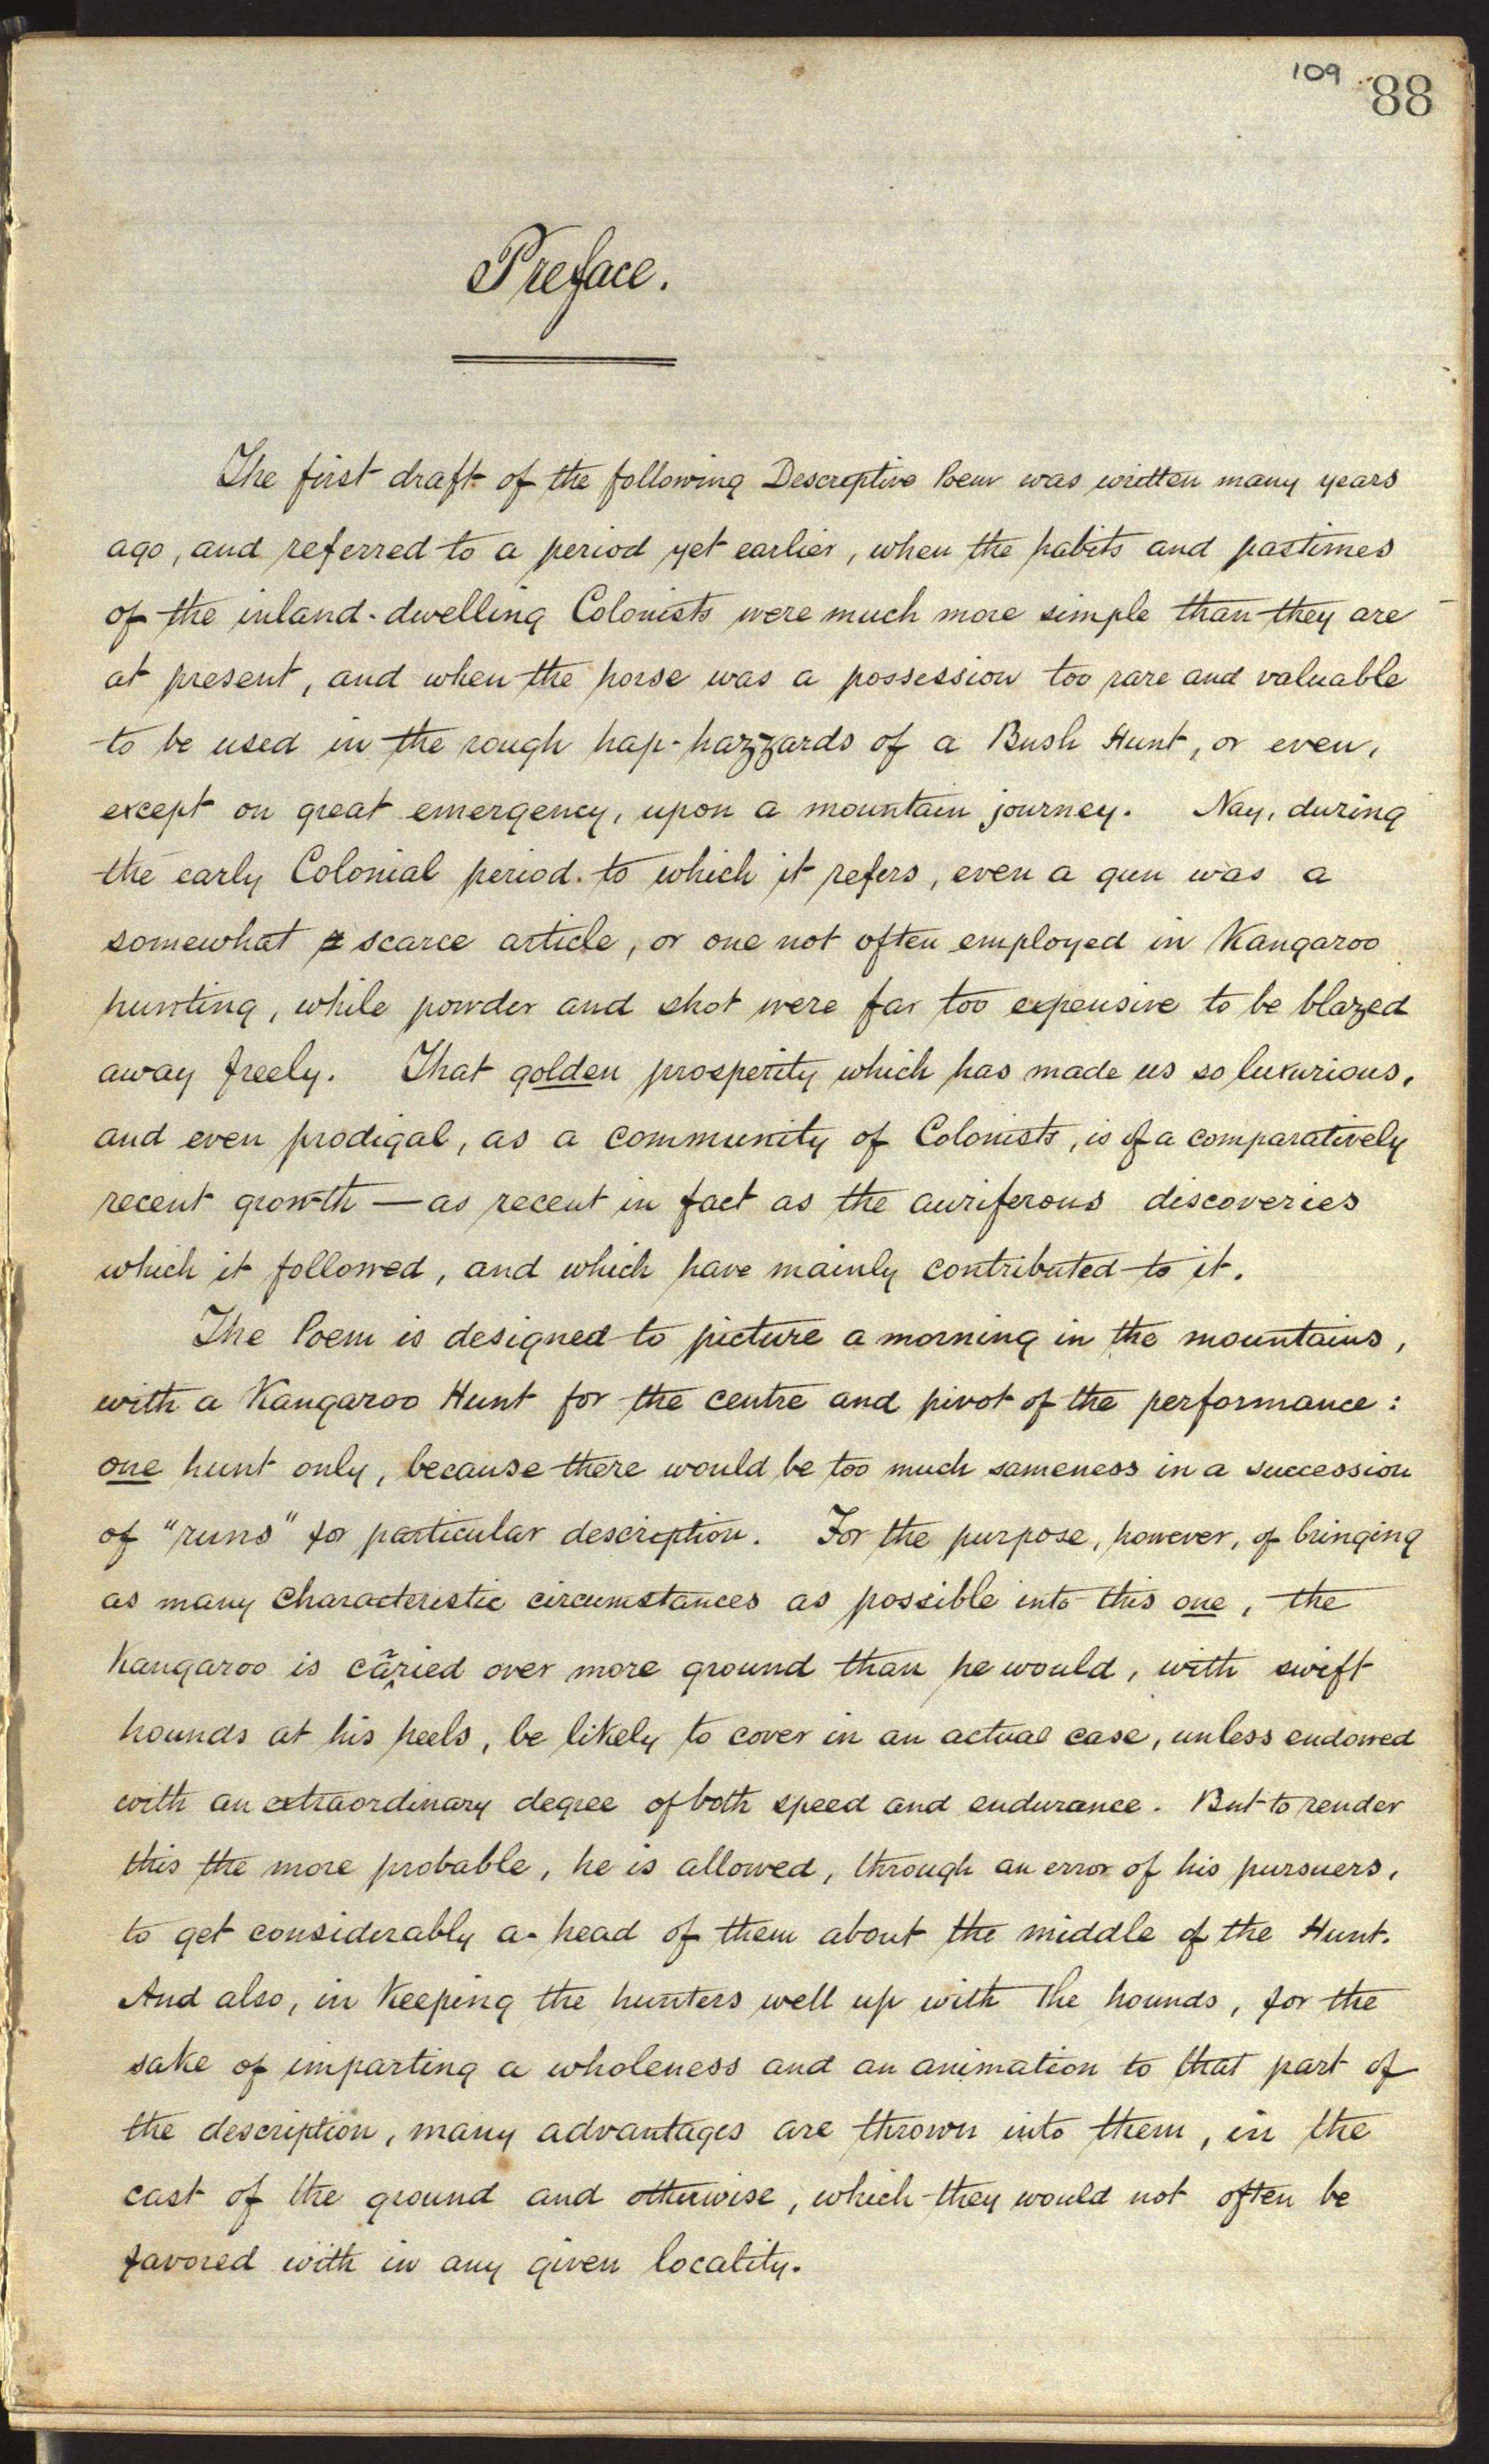 109 88
Preface.
The first draft of the following Descriptive Poem was written many years
ago, and referred to a period yet earlier, when the habits and pastimes
of the inland-dwelling Colonists were much more simple than they are
at present, and when the horse was a possession too rare and valuable
to be used in the rough hap-hazzards of a Bush Hunt, or even,
except on great emergency, upon a mountain journey. Nay, during
the early Colonial period to which it refers, even a gun was a
somewhat a scarce article, or one not often employed in Kangaroo
hunting, while powder and shot were far too expensive to be blazed
away freely. That golden prosperity which has made us so luxurious,
and even prodigal, as a community of Colonists, is of a comparatively
recent growth — as recent in fact as the auriferous discoveries
which it followed, and which have mainly contributed to it.
The Poem is designed to picture a morning in the mountains,
with a Kangaroo Hunt for the centre and pivot of the performance:
one hunt only, because there would be too much sameness in a succession
of "runs" for particular description. For the purpose, however, of bringing
as many characteristic circumstances as possible into this one, the
Kangaroo is carried over more ground than he would, with swift
hounds at his heels, be likely to cover in an actual case, unless endowed
with an extraordinary degree of both speed and endurance. But to render
this the more probable, he is allowed, through an error of his pursuers,
to get considerably a-head of them about the middle of the Hunt.
And also, in keeping the hunters well up with the hounds, for the
sake of imparting a wholeness and an animation to that part of
the description, many advantages are thrown into them, in the
cast of the ground and otherwise, which they would not often be
favored with in any given locality.